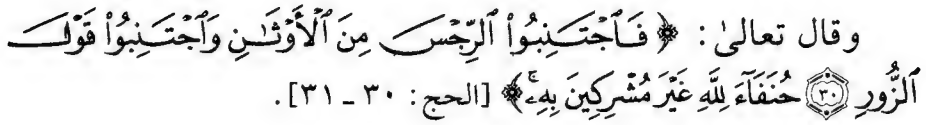 وقال تعالىٰ: ﴿فَٱجْتَنِبُوا۟ ٱلرِّجْسَ مِنَ ٱلْأَوْثَـٰنِ وَٱجْتَنِبُوا۟ قَوْلَ
ٱلزُّورِ ۝٣٠ حُنَفَآءَ لِلَّهِ غَيْرَ مُشْرِكِينَ بِهِۦۚ﴾ [الحج: ٣٠ ـ ٣١].